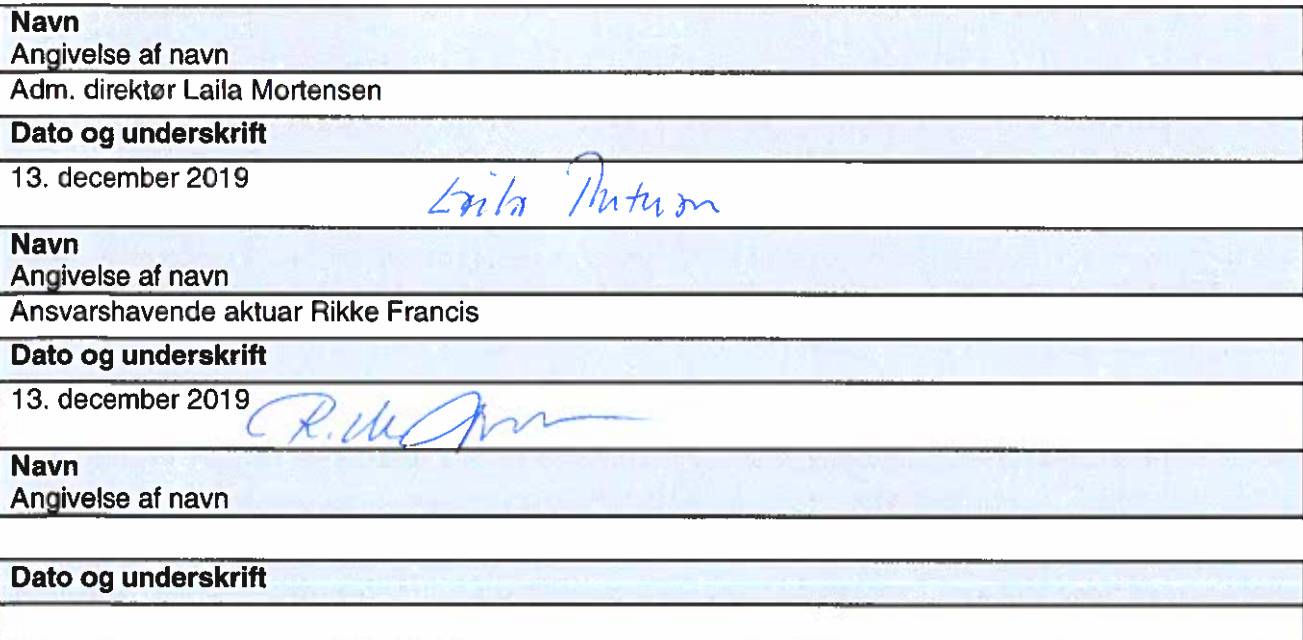 Navn
Angivelse af navn
Adm. direktør Laila Mortensen
Dato og underskrift
13. december 2019 Laila Mortensen
Navn
Angivelse af navn
Ansvarshavende aktuar Rikke Francis
Dato og underskrift
13. december 2019
Navn
Angivelse af navn
Dato og underskrift